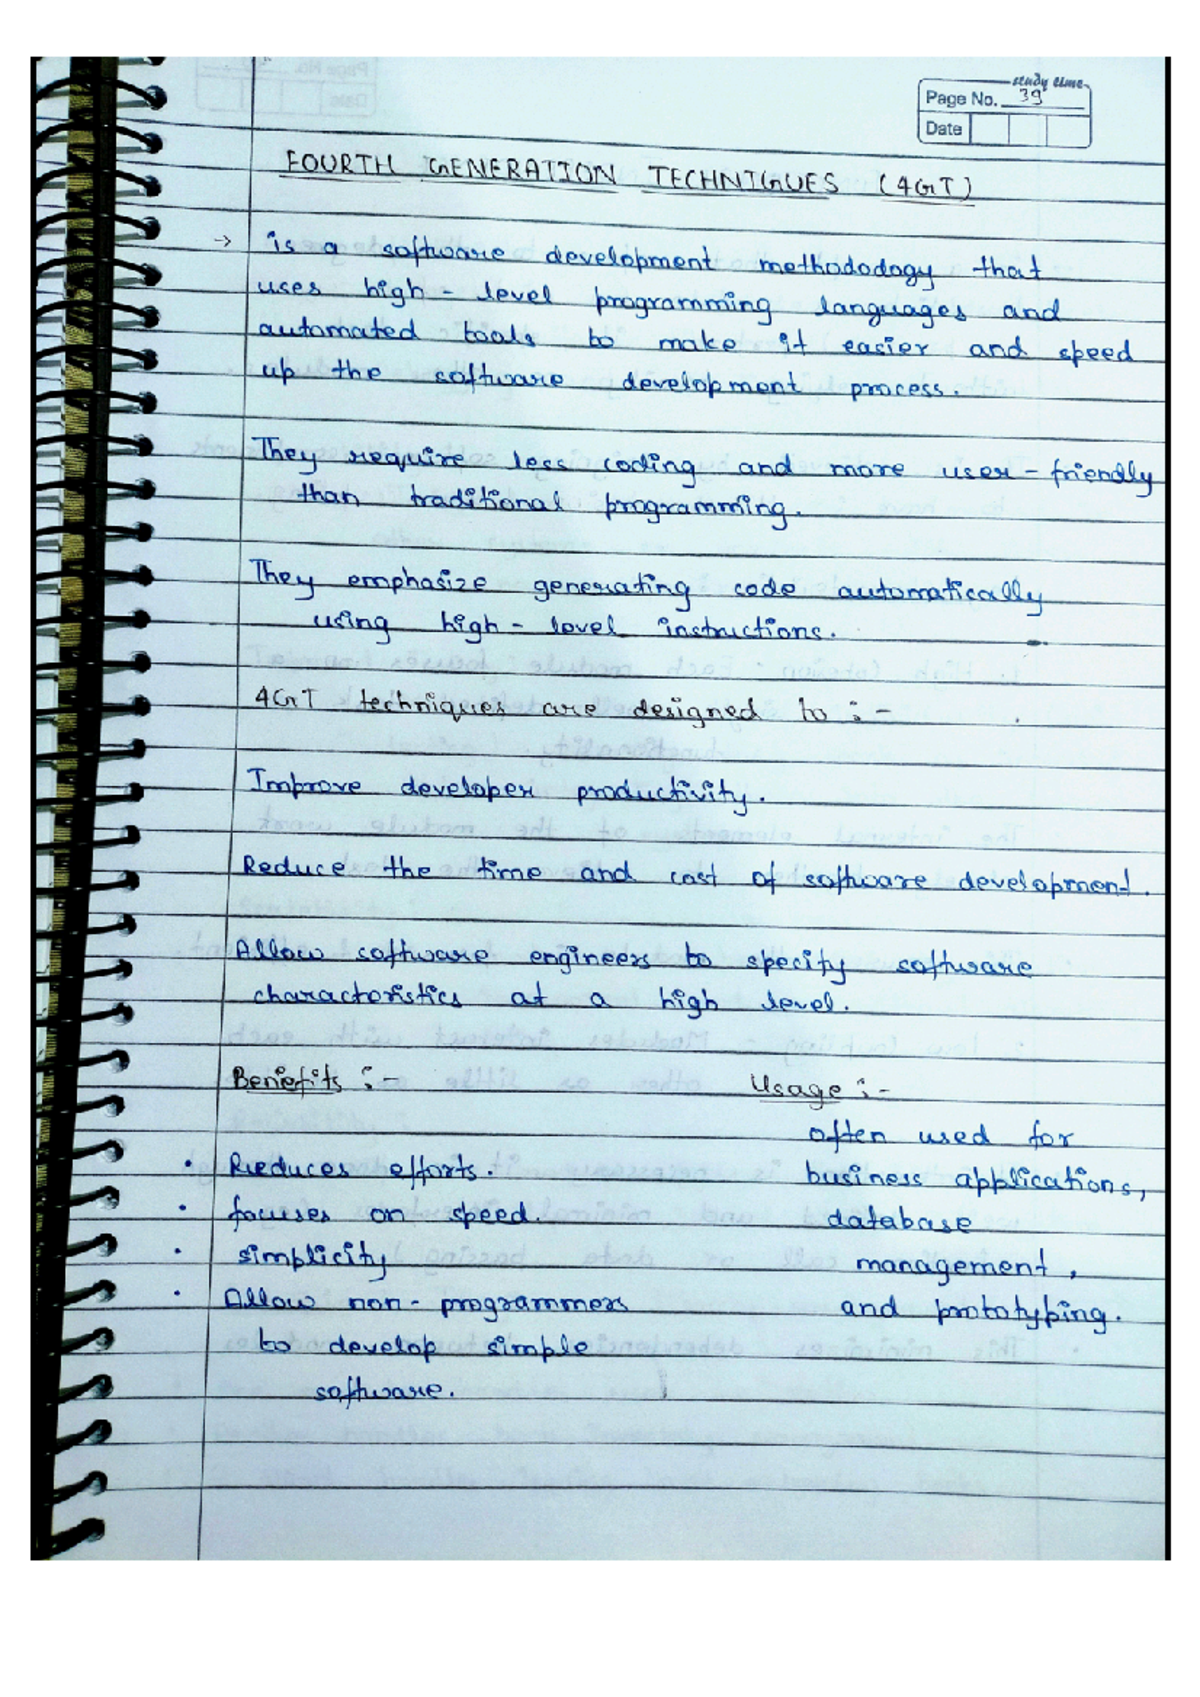 study time
Page No. 39
Date
FOURTH GENERATION TECHNIQUES (4GT)
→ is a software development methododogy that
uses high - level programming languages and
automated tools to make it easier and speed
up the software development process.
They require less coding and more user - friendly
than traditional programming.
They emphasize generating code automatically
using high - level instructions.
4GT techniques are designed to :-
Improve developer productivity.
Reduce the time and cost of software development.
Allow software engineers to specify software
characteristics at a high level.
Benefits :-
• Reduces efforts.
• focuses on speed.
• simplicity
• Allow non - programmers
to develop simple
software.
Usage :-
often used for
business applications,
database
management,
and prototyping.